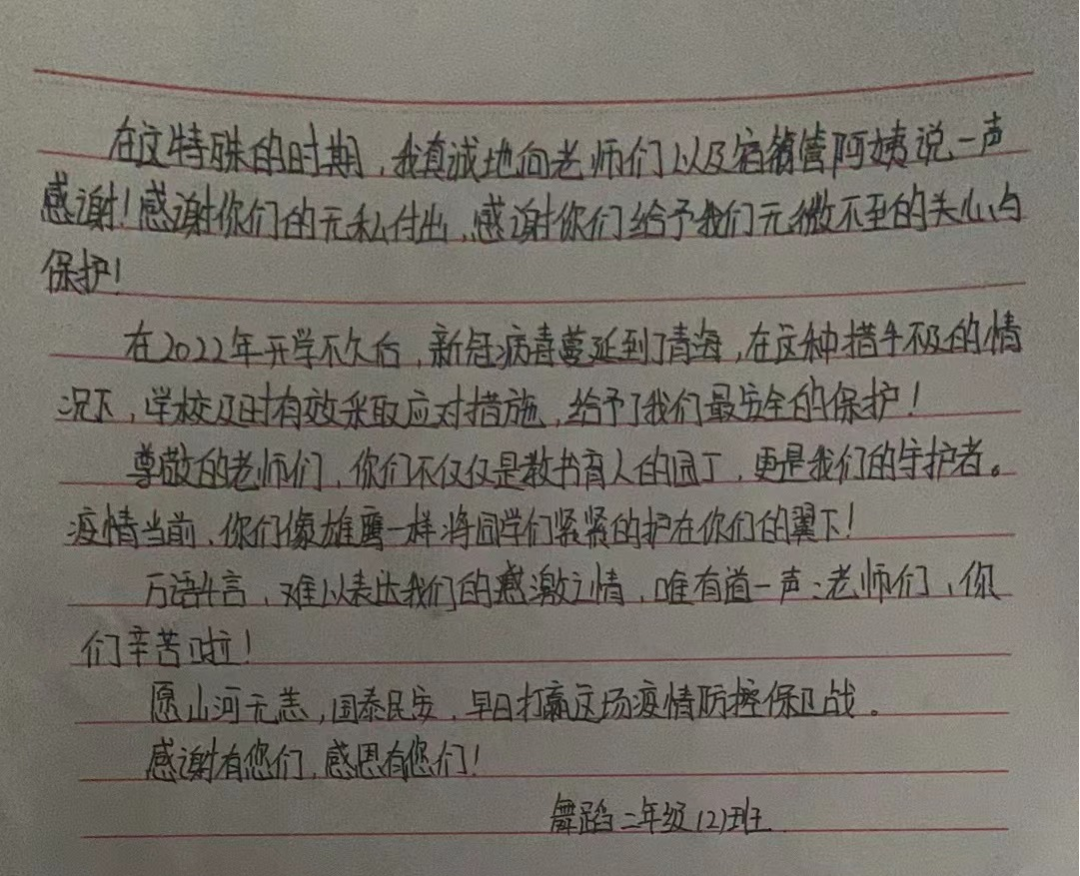 在这特殊的时期，我真诚地向老师们以及宿管阿姨说一声
感谢！感谢你们的无私付出，感谢你们给予我们无微不至的关心与
保护！
在2022年开学不久后，新冠病毒蔓延到了青海，在这种措手不及的情
况下，学校及时有效采取应对措施，给予了我们最安全的保护！
尊敬的老师们，你们不仅仅是教书育人的园丁，更是我们的守护者。
疫情当前，你们像雄鹰一样将同学们紧紧的护在你们的翼下！
万语千言，难以表达我们的感激之情，唯有道一声：老师们，你
们辛苦啦！
愿山河无恙，国泰民安，早日打赢这场疫情防控保卫战。
感谢有您们，感恩有您们！
舞蹈二年级(2)班